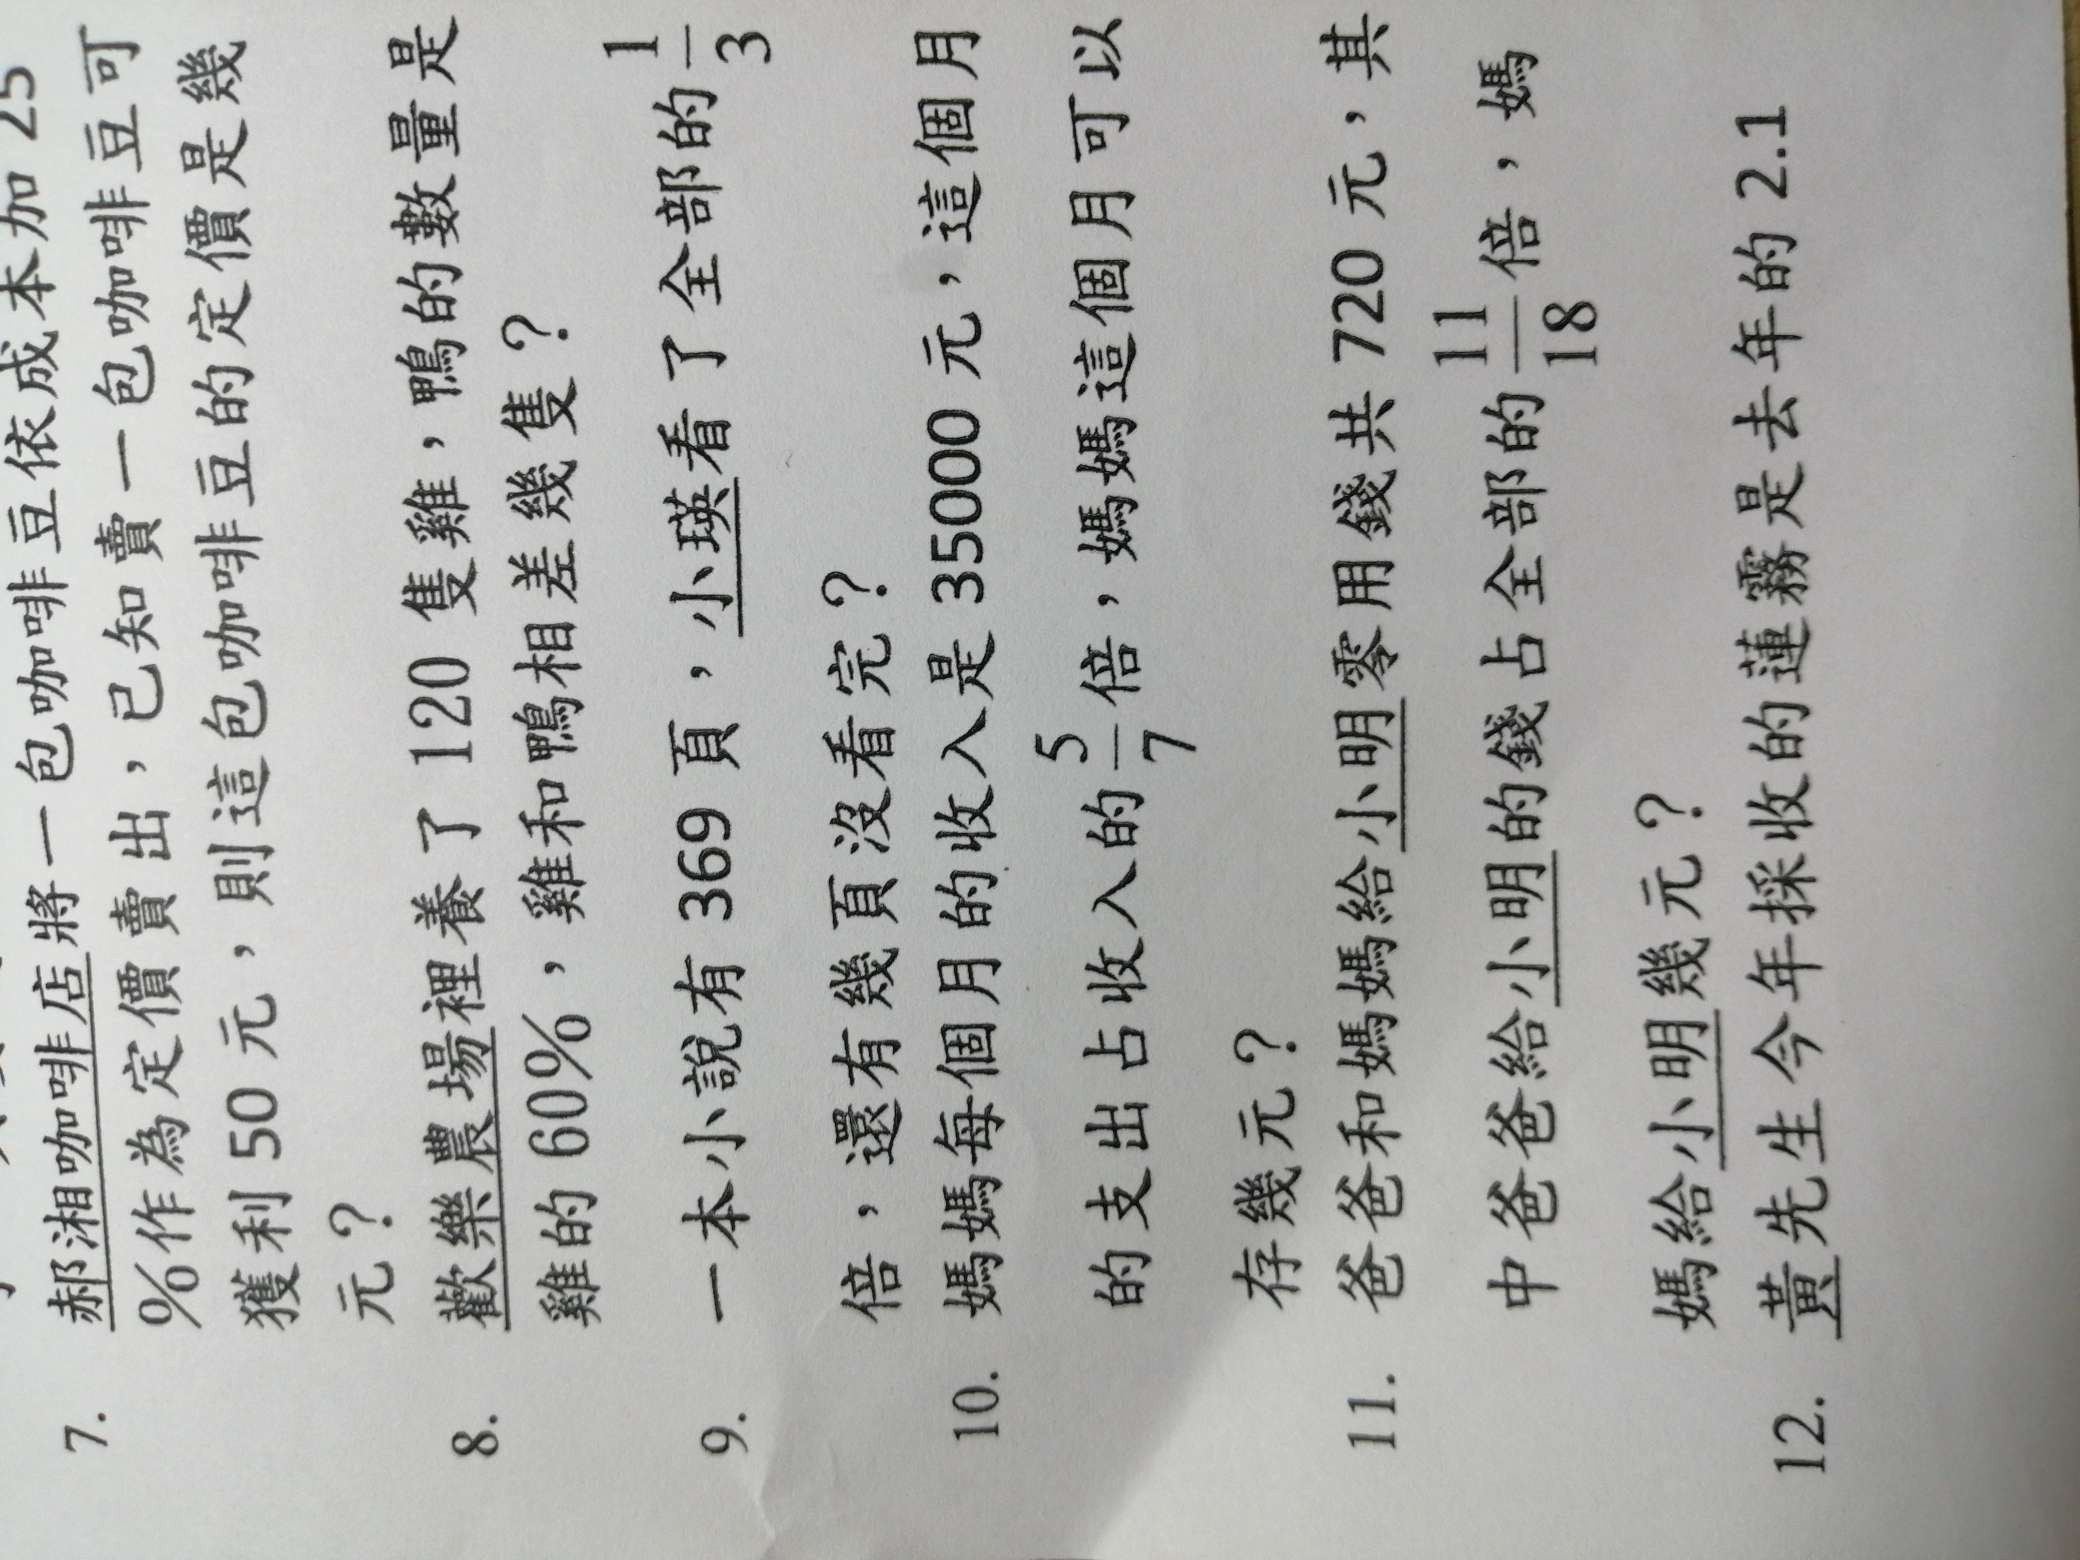 7. 郝湘咖啡店將一包咖啡豆依成本加 25
%作為定價賣出，已知賣一包咖啡豆可
獲利 50 元，則這包咖啡豆的定價是幾
元？
8. 歡樂農場裡養了 120 隻雞，鴨的數量是
雞的 60%，雞和鴨相差幾隻？
9. 一本小說有 369 頁，小瑛看了全部的 1/3
倍，還有幾頁沒看完？
10. 媽媽每個月的收入是 35000 元，這個月
的支出占收入的 5/7 倍，媽媽這個月可以
存幾元？
11. 爸爸和媽媽給小明零用錢共 720 元，其
中爸爸給小明的錢占全部的 11/18 倍，媽
媽給小明幾元？
12. 黃先生今年採收的蓮霧是去年的 2.1